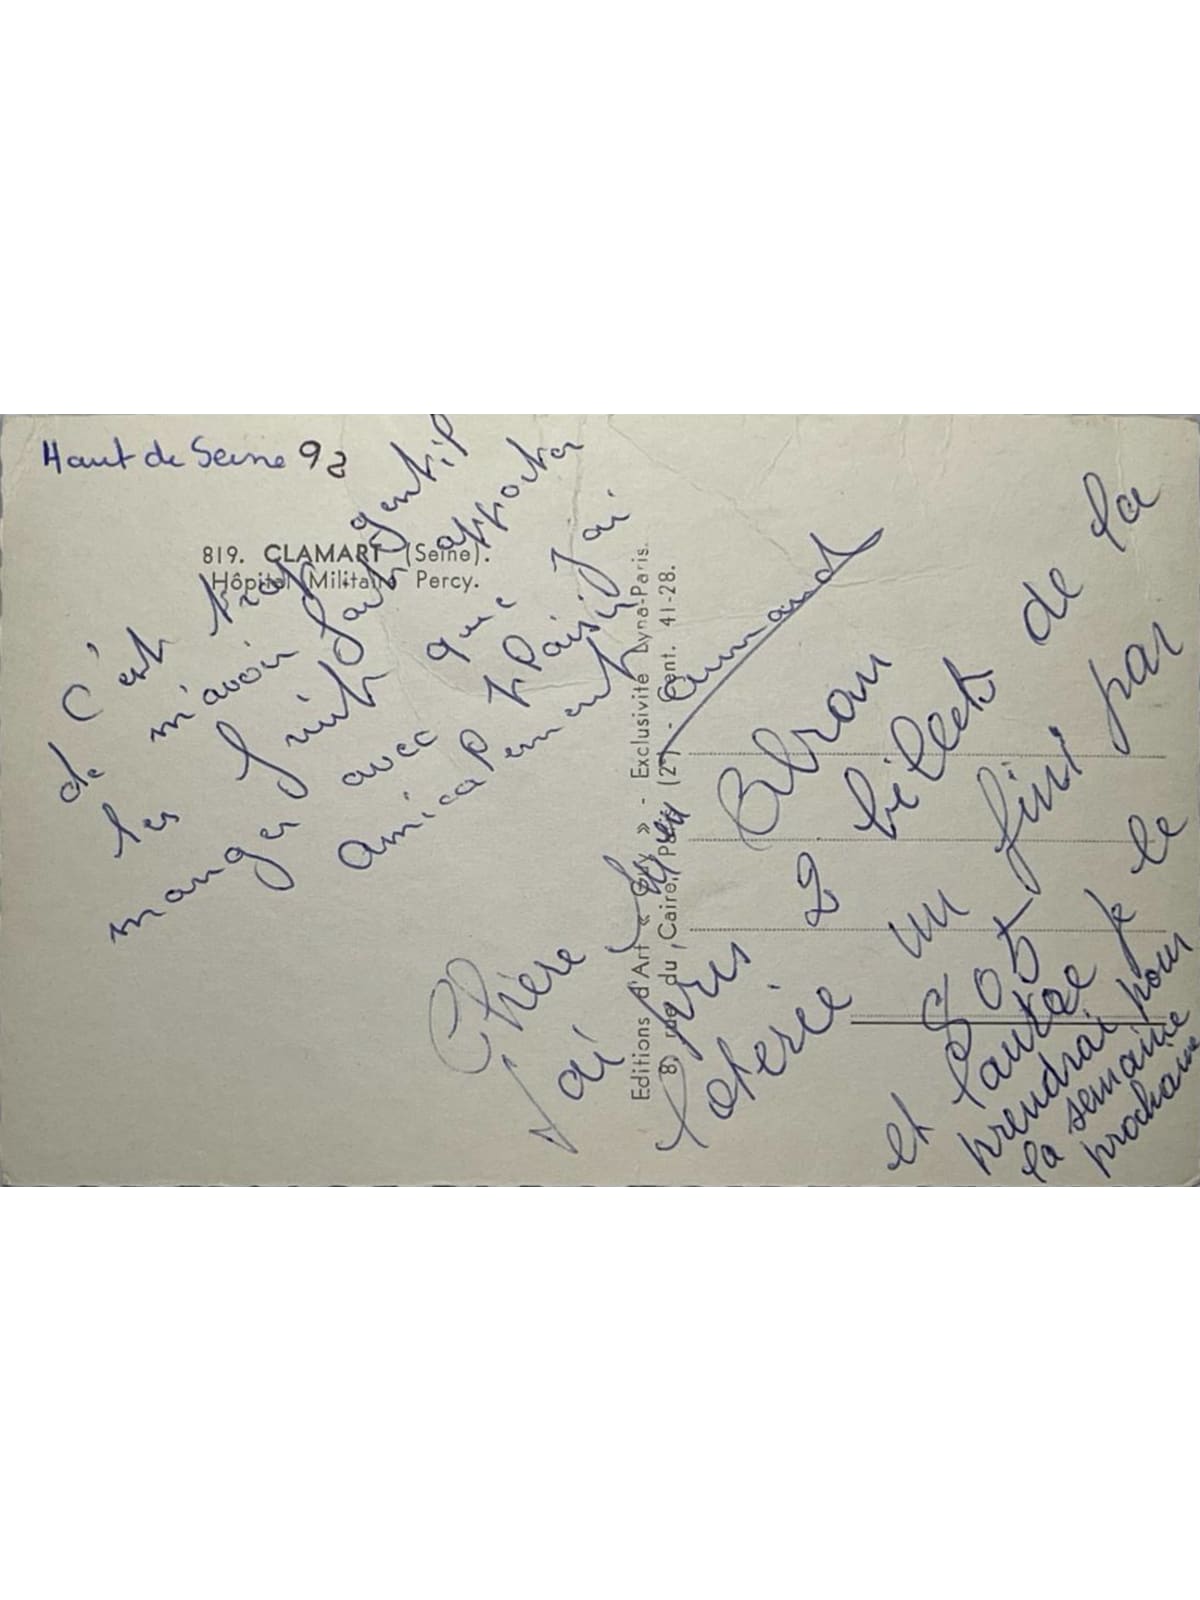 Haut de Seine 92
819. CLAMART (Seine).
Hôpital Militaire Percy.
Editions d'Art « Guy » - Exclusivité Lyna-Paris.
8, rue du Caire, Paris (2e) - Cent. 41-28.
Chère
J'ai pris 2 billets de la
loterie un fini par
805
et l'autre je le
prendrai pour
la semaine
prochaine
c'est trop gentil
de m'avoir fait apporter
les fruit que j'ai
manger avec plaisir
amicalement
Armand